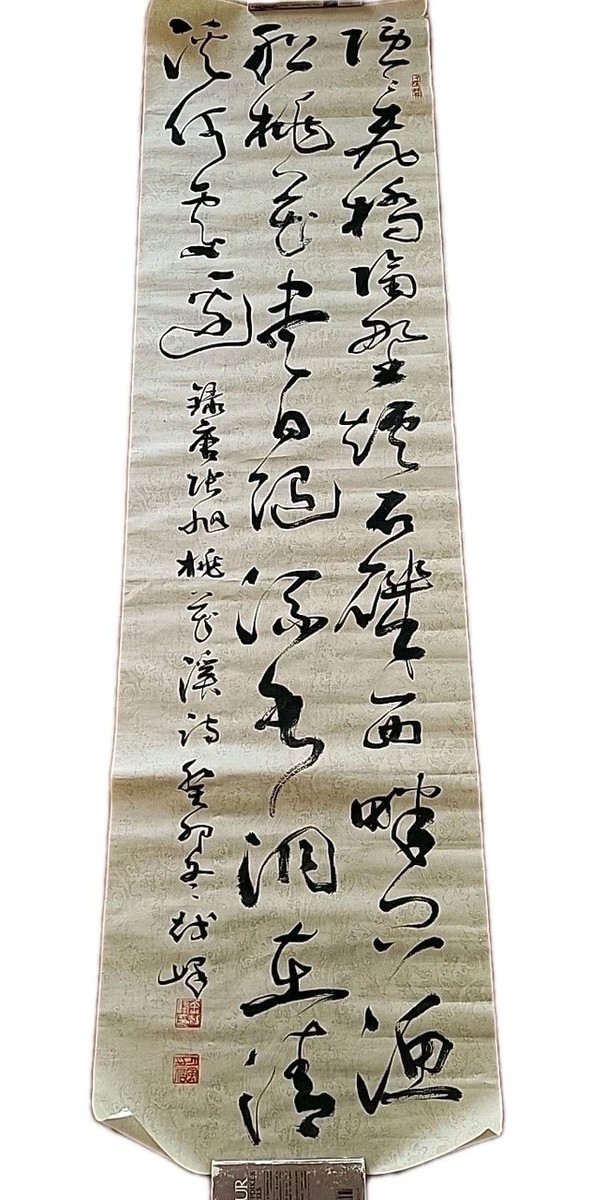 隱隱飛橋隔野煙石磯西畔問漁
船桃花盡日隨流水洞在清
溪何處邊
錄唐張旭桃花溪詩癸卯冬越